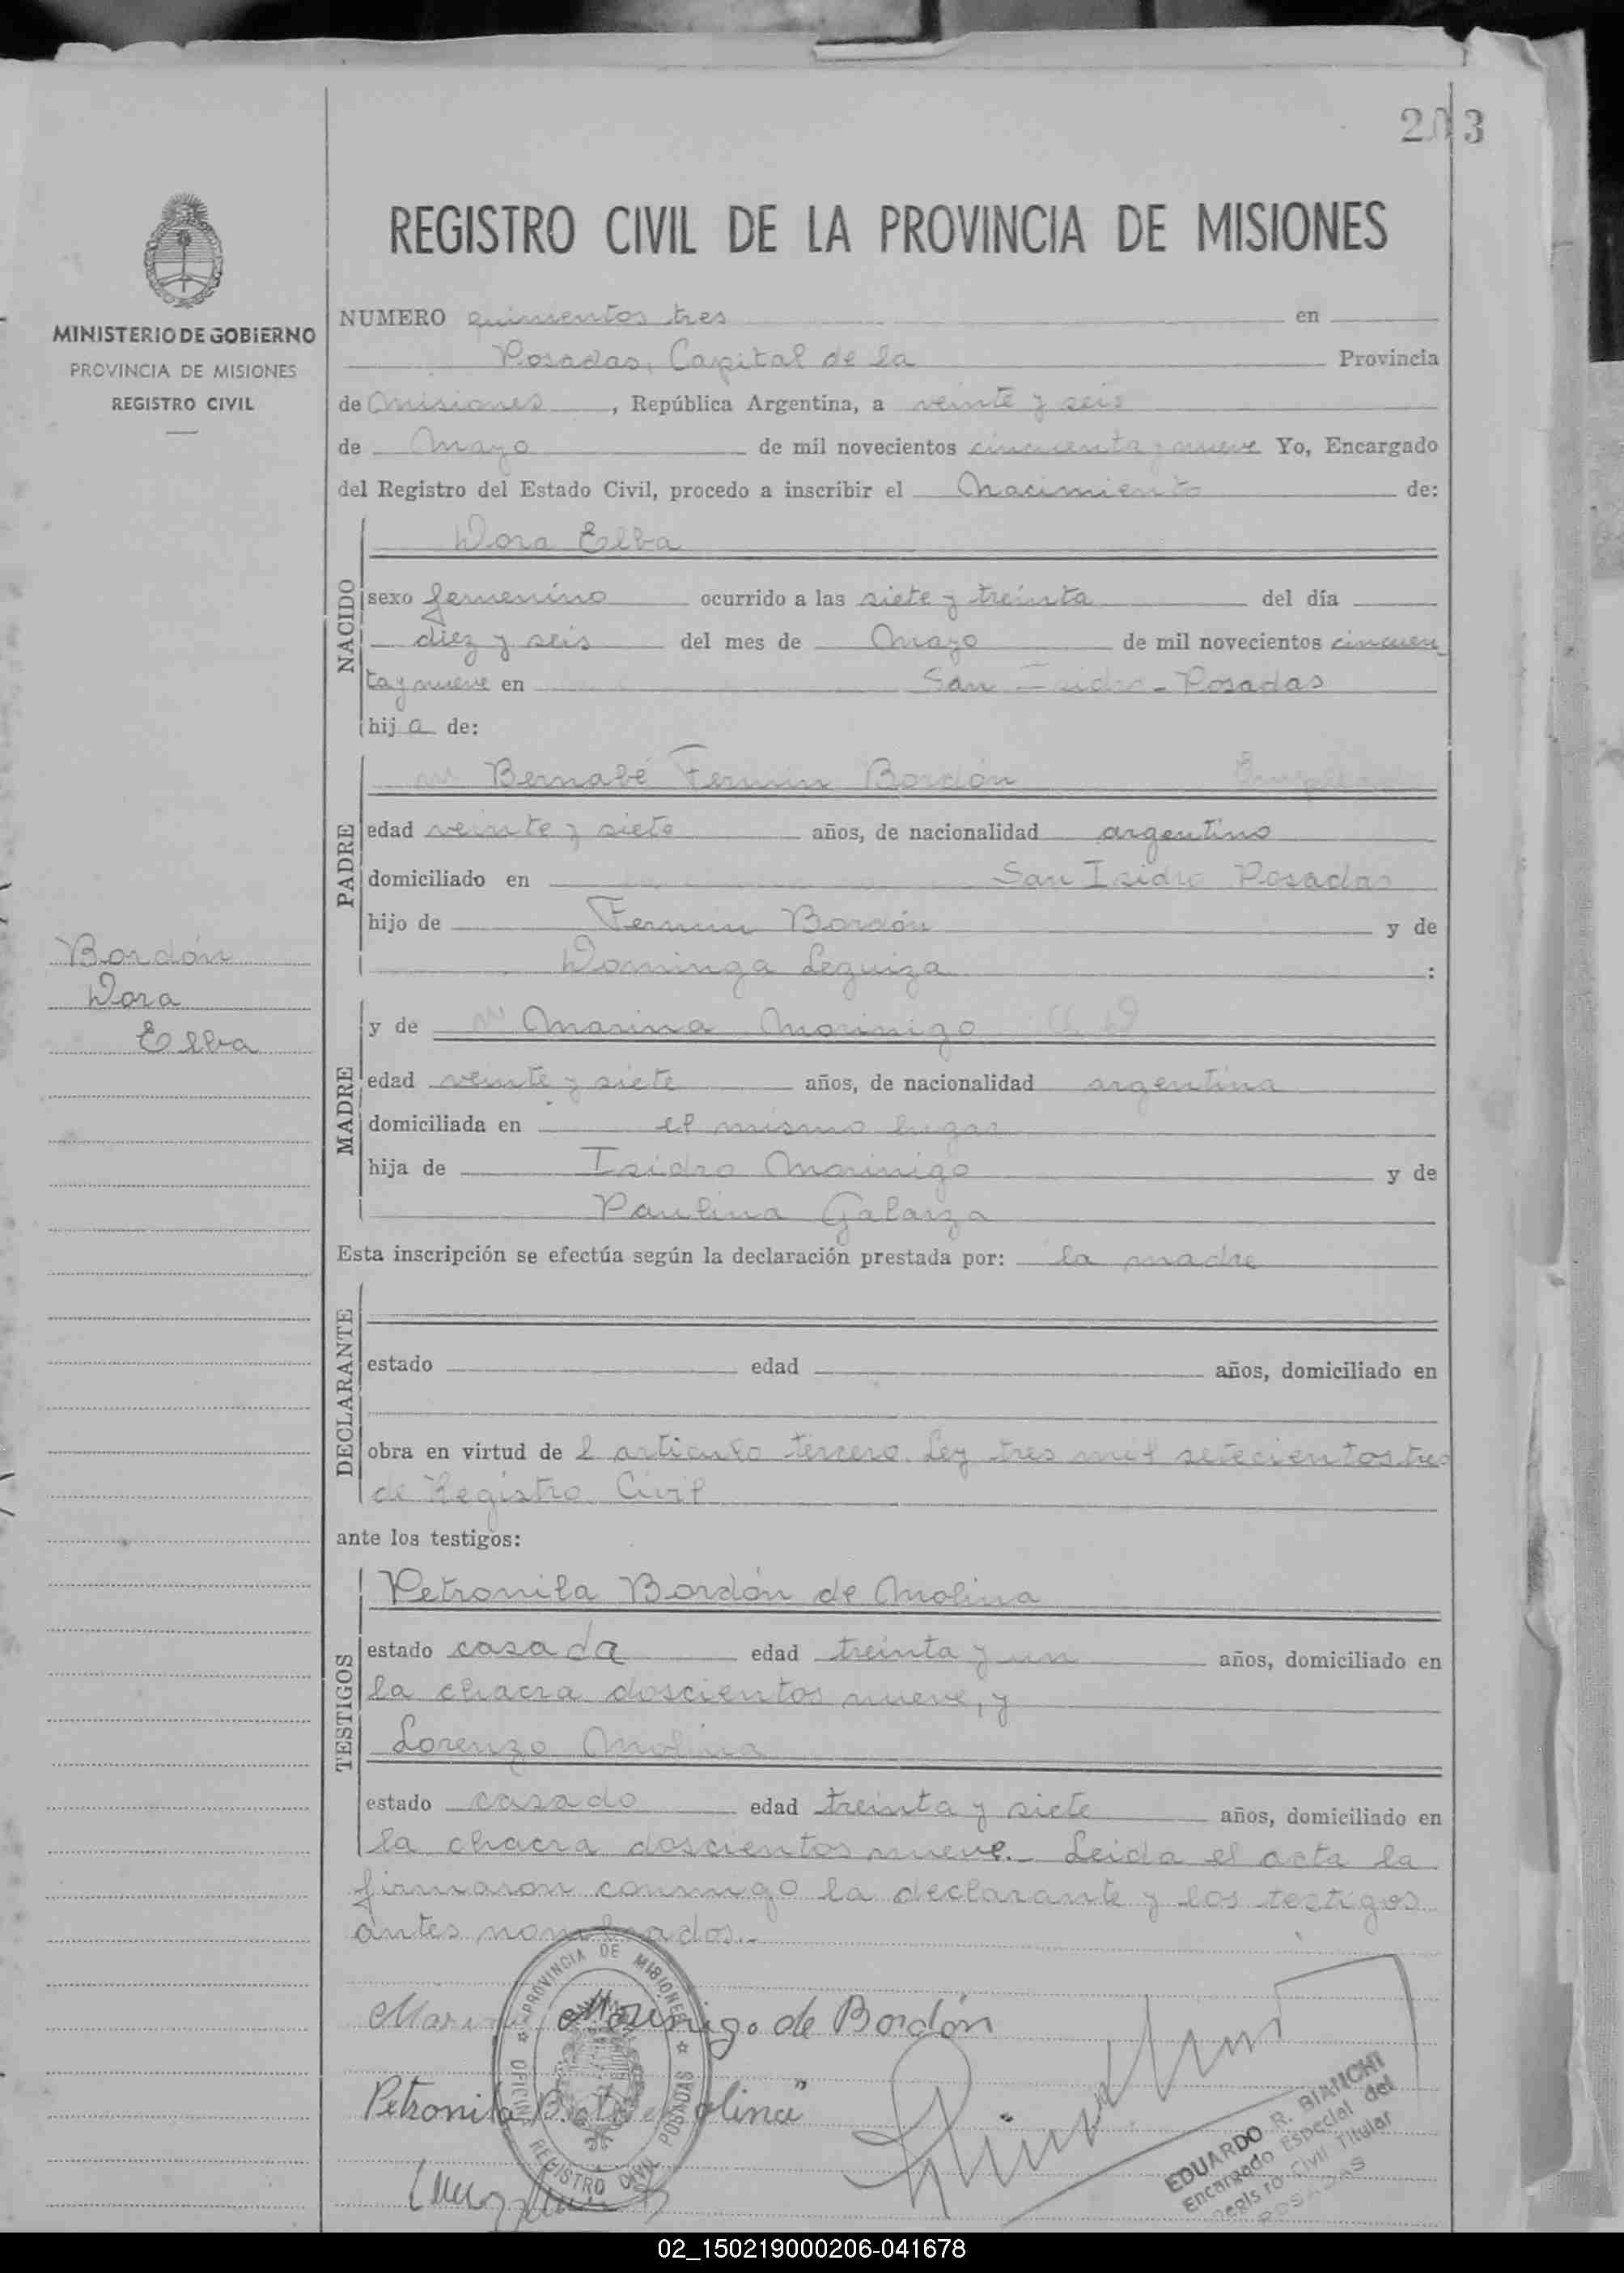 203
REGISTRO CIVIL DE LA PROVINCIA DE MISIONES
MINISTERIO DE GOBIERNO
PROVINCIA DE MISIONES
REGISTRO CIVIL
NUMERO quinientos tres en
Posadas, Capital de la Provincia
de Misiones, República Argentina, a veinte y seis
de Mayo de mil novecientos cincuenta y nueve Yo, Encargado
del Registro del Estado Civil, procedo a inscribir el Nacimiento de:
NACIDO
Dora Elba
sexo femenino ocurrido a las siete y treinta del día
diez y seis del mes de Mayo de mil novecientos cincuen
ta y nueve en San Isidro - Posadas
hija de:
PADRE
Bernabé Fermin Bordón
edad veinte y siete años, de nacionalidad argentino
domiciliado en San Isidro Posadas
hijo de Fermin Bordón y de
Dominga Leguiza :
Bordón
Dora
Elba
MADRE
y de Marina Morinigo
edad veinte y siete años, de nacionalidad argentina
domiciliada en el mismo lugar
hija de Isidro Morinigo y de
Paulina Galarza
Esta inscripción se efectúa según la declaración prestada por: la madre
DECLARANTE
estado edad años, domiciliado en
obra en virtud de l articulo tercero Ley tres mil setecientos tres
de Registro Civil
ante los testigos:
TESTIGOS
Petronila Bordón de Molina
estado casada edad treinta y un años, domiciliado en
la chacra doscientos nueve, y
Lorenzo Molina
estado casado edad treinta y siete años, domiciliado en
la chacra doscientos nueve.- Leida el acta la
firmaron conmigo la declarante y los testigos
antes nombrados.-
Marina Morinigo de Bordón
Petronila B. de Molina
PROVINCIA DE MISIONES
OFICINA REGISTRO CIVIL POSADAS
EDUARDO R. BIANCHI
Encargado Especial del
Registro Civil Titular
POSADAS
02_150219000206-041678